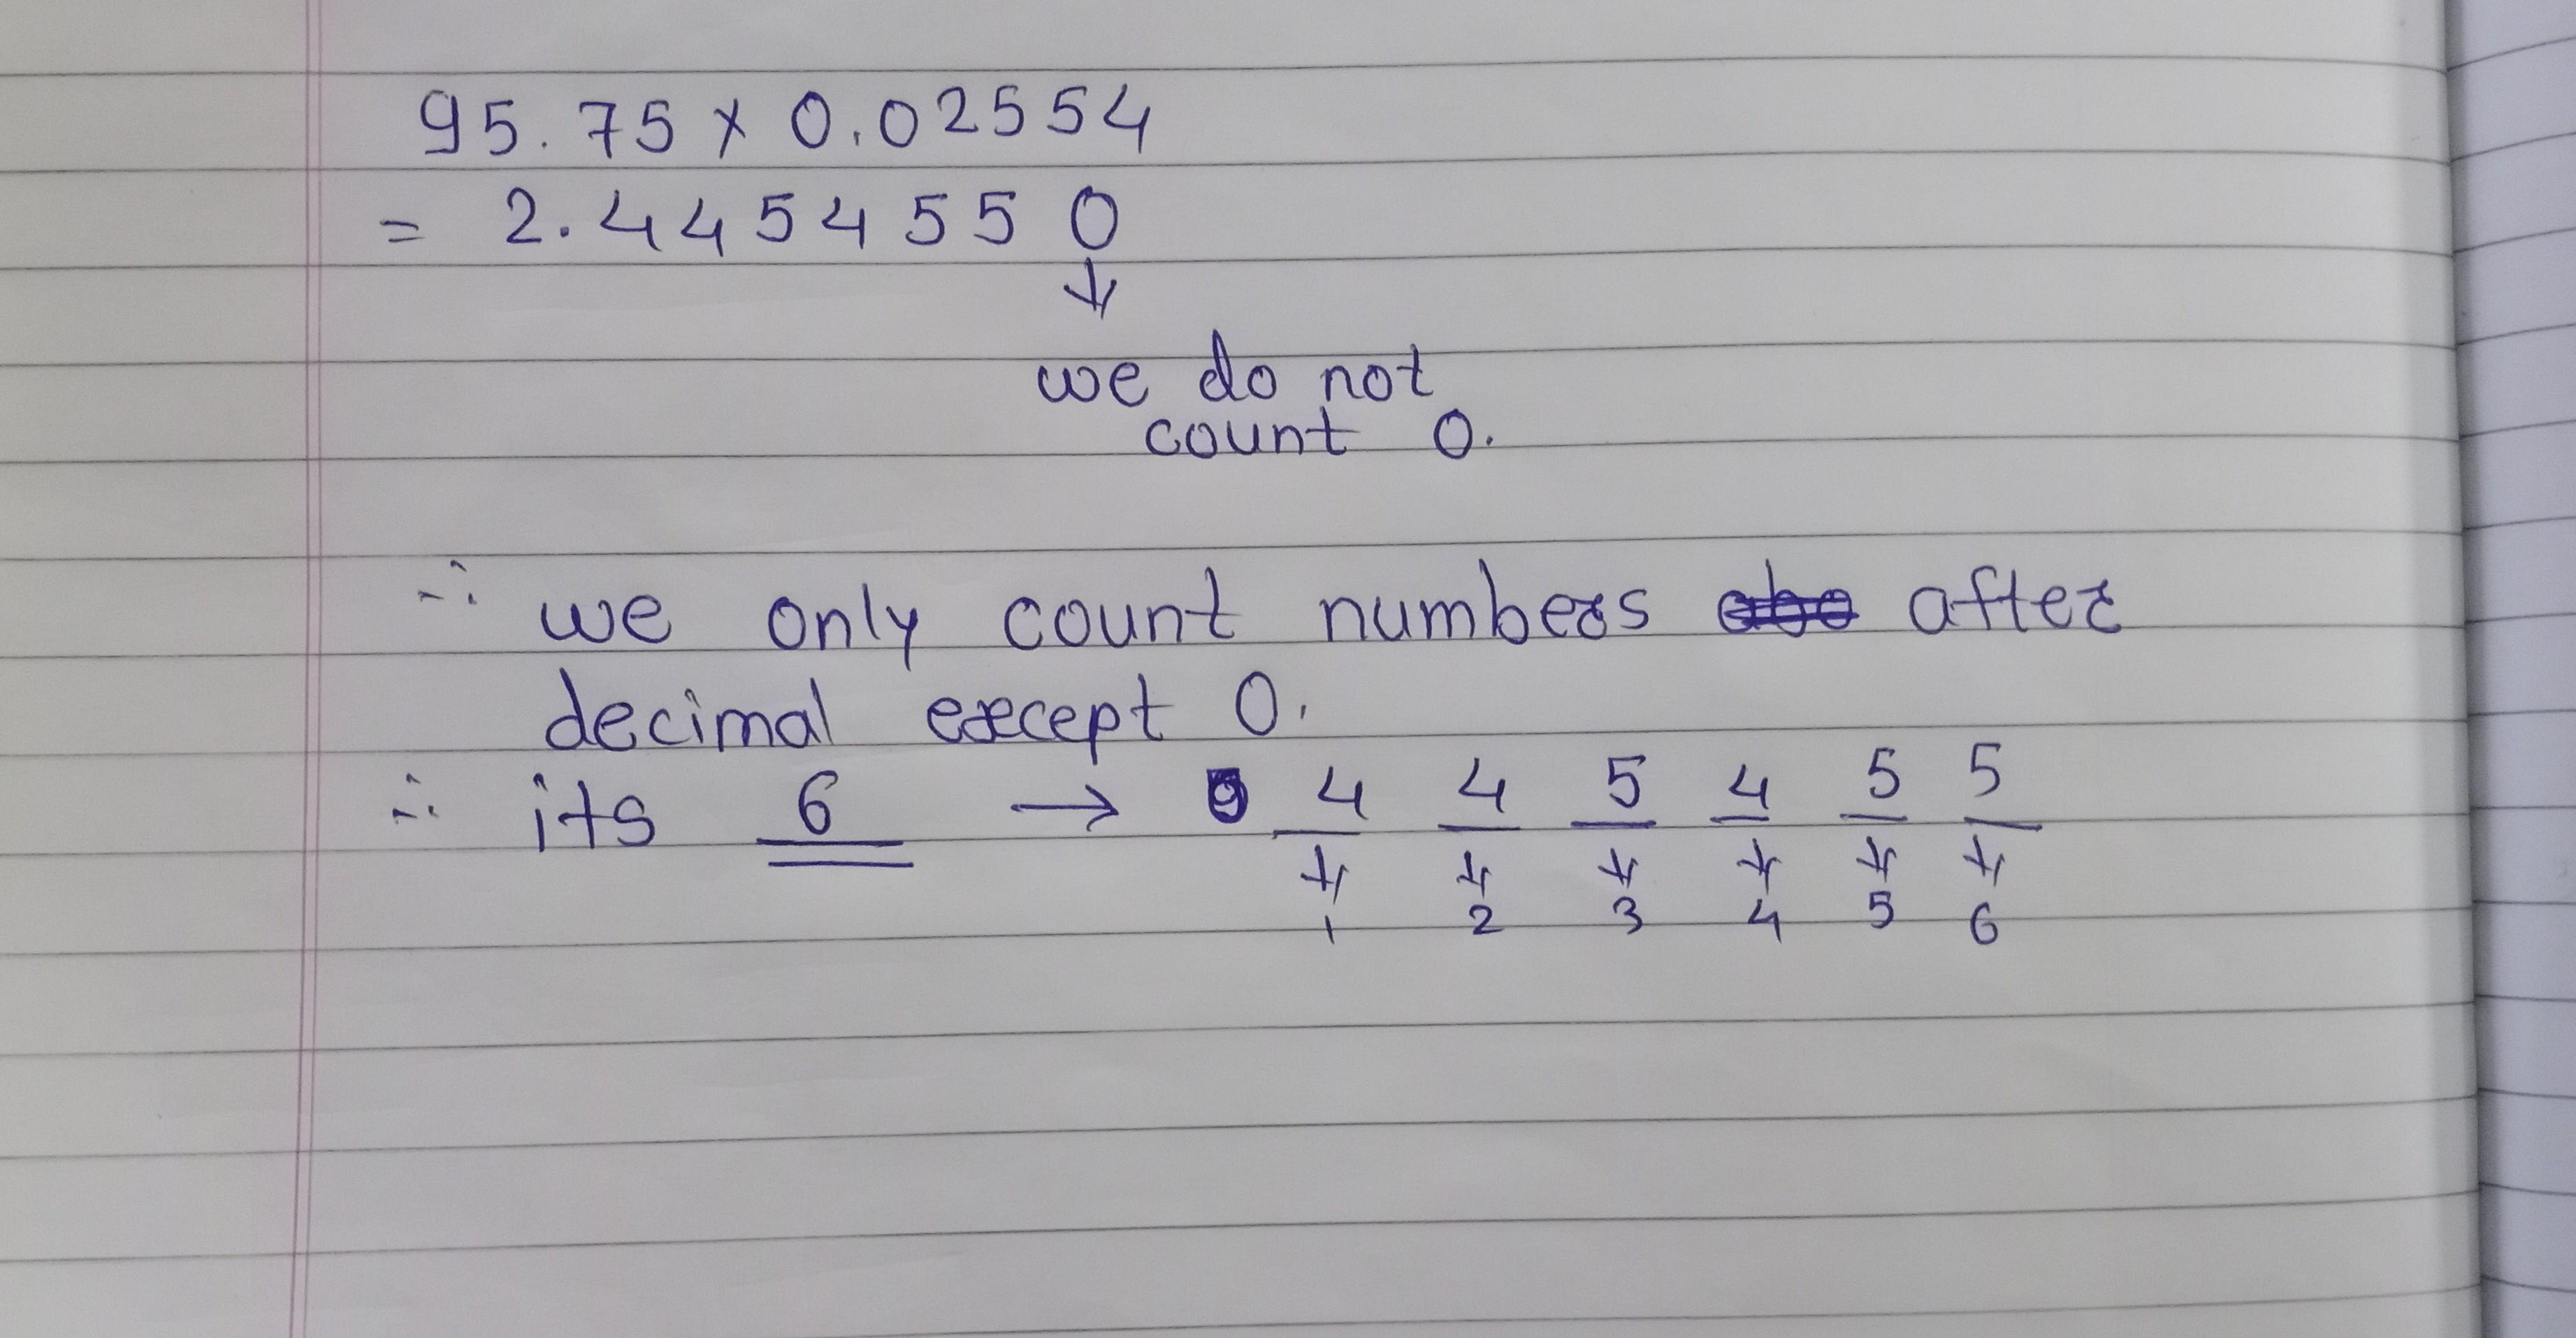 95.75 x 0.02554
= 2.4454550
↓
we do not
count 0.
∴ we only count numbers after
decimal except 0.
∴ its 6 → 4 4 5 4 5 5
↓ ↓ ↓ ↓ ↓ ↓
1 2 3 4 5 6